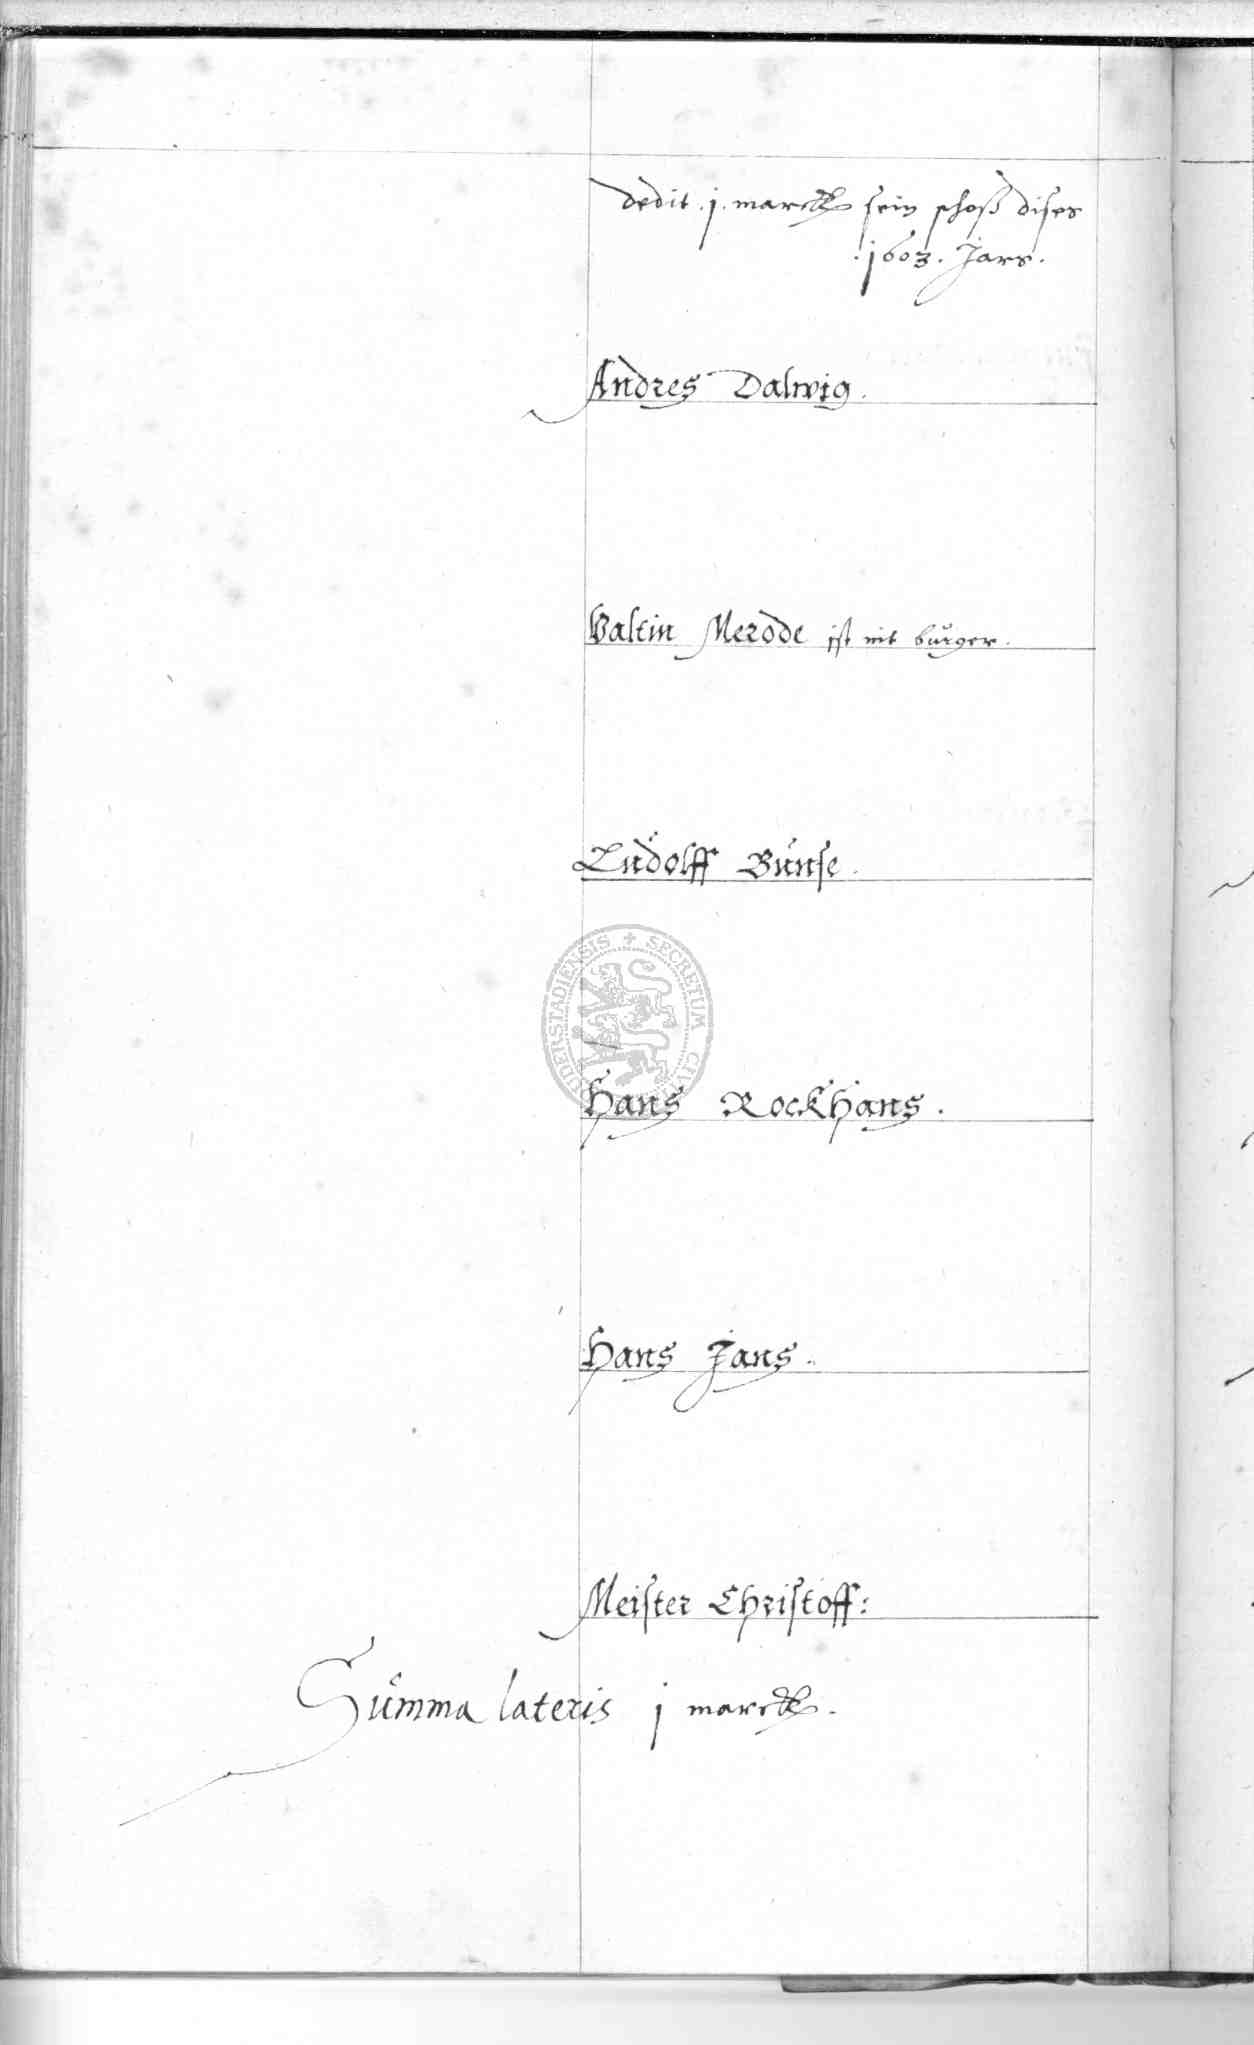 dedit .j. marck sein schoß dises
.1603. Jars.
Andres Dalwig.
Valtin Merode ist nit burger.
Ludolff Bunse.
SECRETUM CIVITATIS DUDERSTADIENSIS
Hans Rockhans.
Hans Jans.
Meister Christoff:
Summa lateris j marck.